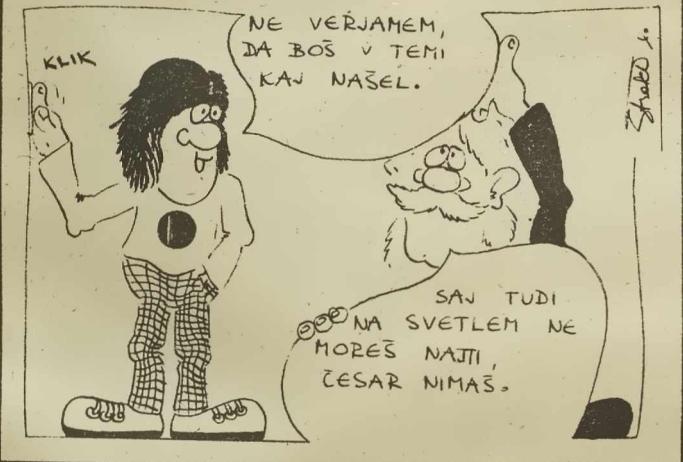 KLIK
NE VERJAMEM,
DA BOŠ V TEMI
KAJ NAŠEL.
SAJ TUDI
NA SVETLEM NE
MOREŠ NAJTI,
ČESAR NIMAŠ.